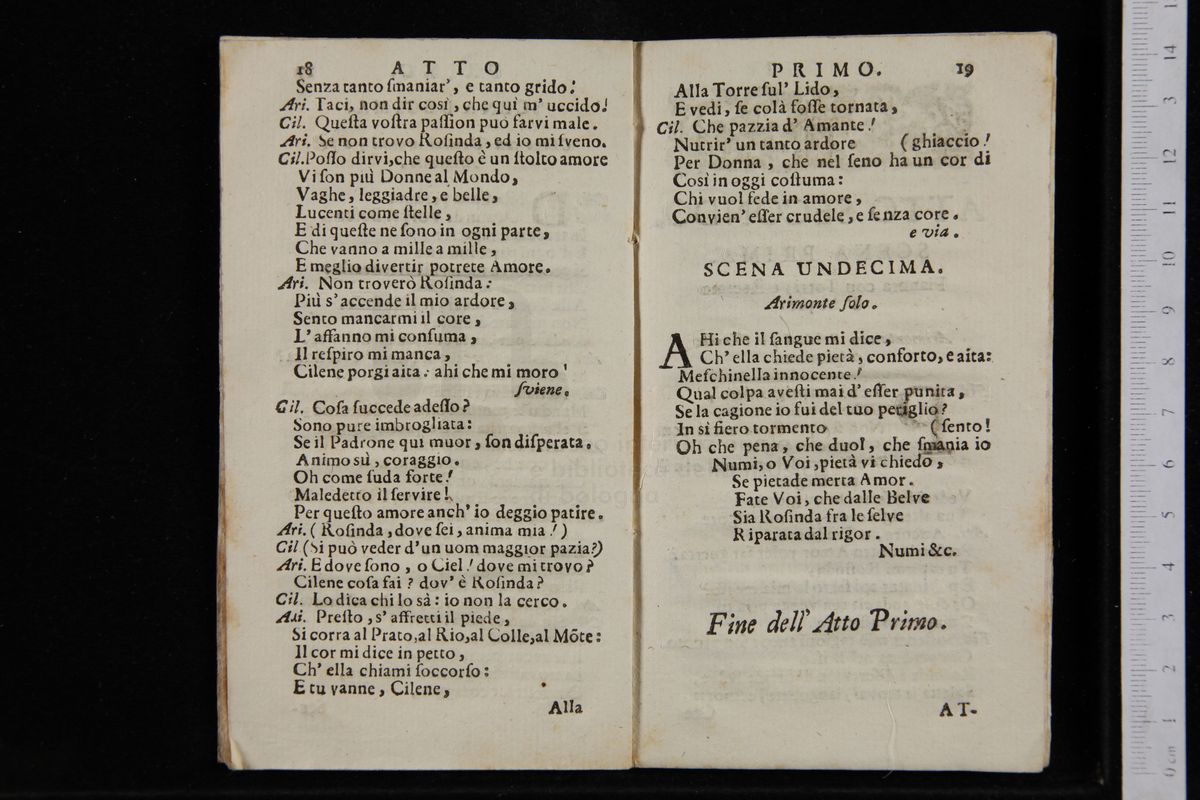 18 ATTO
Senza tanto ſmaniar', e tanto grido!
Ari. Taci, non dir così, che quì m' uccido!
Cil. Queſta voſtra paſſion può farvi male.
Ari. Se non trovo Roſinda, ed io mi ſveno.
Cil. Poſſo dirvi, che queſto è un ſtolto amore
Vi ſon più Donne al Mondo,
Vaghe, leggiadre, e belle,
Lucenti come ſtelle,
E di queſte ne ſono in ogni parte,
Che vanno a mille a mille,
E meglio divertir potrete Amore.
Ari. Non troverò Roſinda:
Più s' accende il mio ardore,
Sento mancarmi il core,
L' affanno mi conſuma,
Il reſpiro mi manca,
Cilene porgi aita: ahi che mi moro !
ſviene.
Cil. Coſa ſuccede adeſſo?
Sono pure imbrogliata:
Se il Padrone quì muor, ſon diſperata.
Animo sù, coraggio.
Oh come ſuda forte!
Maledetto il ſervire!
Per queſto amore anch' io deggio patire.
Ari. ( Roſinda, dove ſei, anima mia! )
Cil (Si può veder d' un uom maggior pazia?)
Ari. E dove ſono, o Ciel! dove mi trovo?
Cilene coſa fai? dov' è Roſinda?
Cil. Lo dica chi lo sà: io non la cerco.
Ari. Preſto, s' affretti il piede,
Si corra al Prato, al Rio, al Colle, al Mõte:
Il cor mi dice in petto,
Ch' ella chiami ſoccorſo:
E tu vanne, Cilene,
Alla
PRIMO. 19
Alla Torre ſul' Lido,
E vedi, ſe colà foſſe tornata,
Cil. Che pazzia d' Amante!
Nutrir' un tanto ardore (ghiaccio!
Per Donna, che nel ſeno ha un cor di
Così in oggi coſtuma:
Chi vuol fede in amore,
Convien' eſſer crudele, e ſenza core.
e via.
SCENA UNDECIMA.
Arimonte ſolo.
AHi che il ſangue mi dice,
Ch' ella chiede pietà, conforto, e aita:
Meſchinella innocente!
Qual colpa aveſti mai d' eſſer punita,
Se la cagione io fui del tuo periglio?
In sì fiero tormento (ſento!
Oh che pena, che duol, che ſmania io
Numi, o Voi, pietà vi chiedo,
Se pietade merta Amor.
Fate Voi, che dalle Belve
Sia Roſinda fra le ſelve
Riparata dal rigor.
Numi &c.
Fine dell' Atto Primo.
AT-